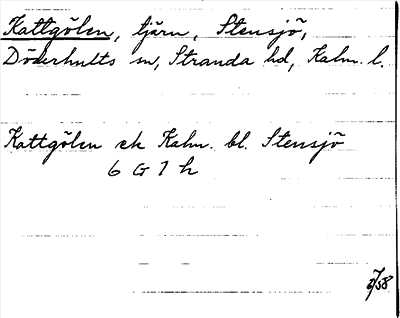 Kattgölen, tjärn, Stensjö,
Döderhults sn, Stranda hd, Kalm. l.
Kattgölen ek Kalm. bl. Stensjö
6 G 1 h